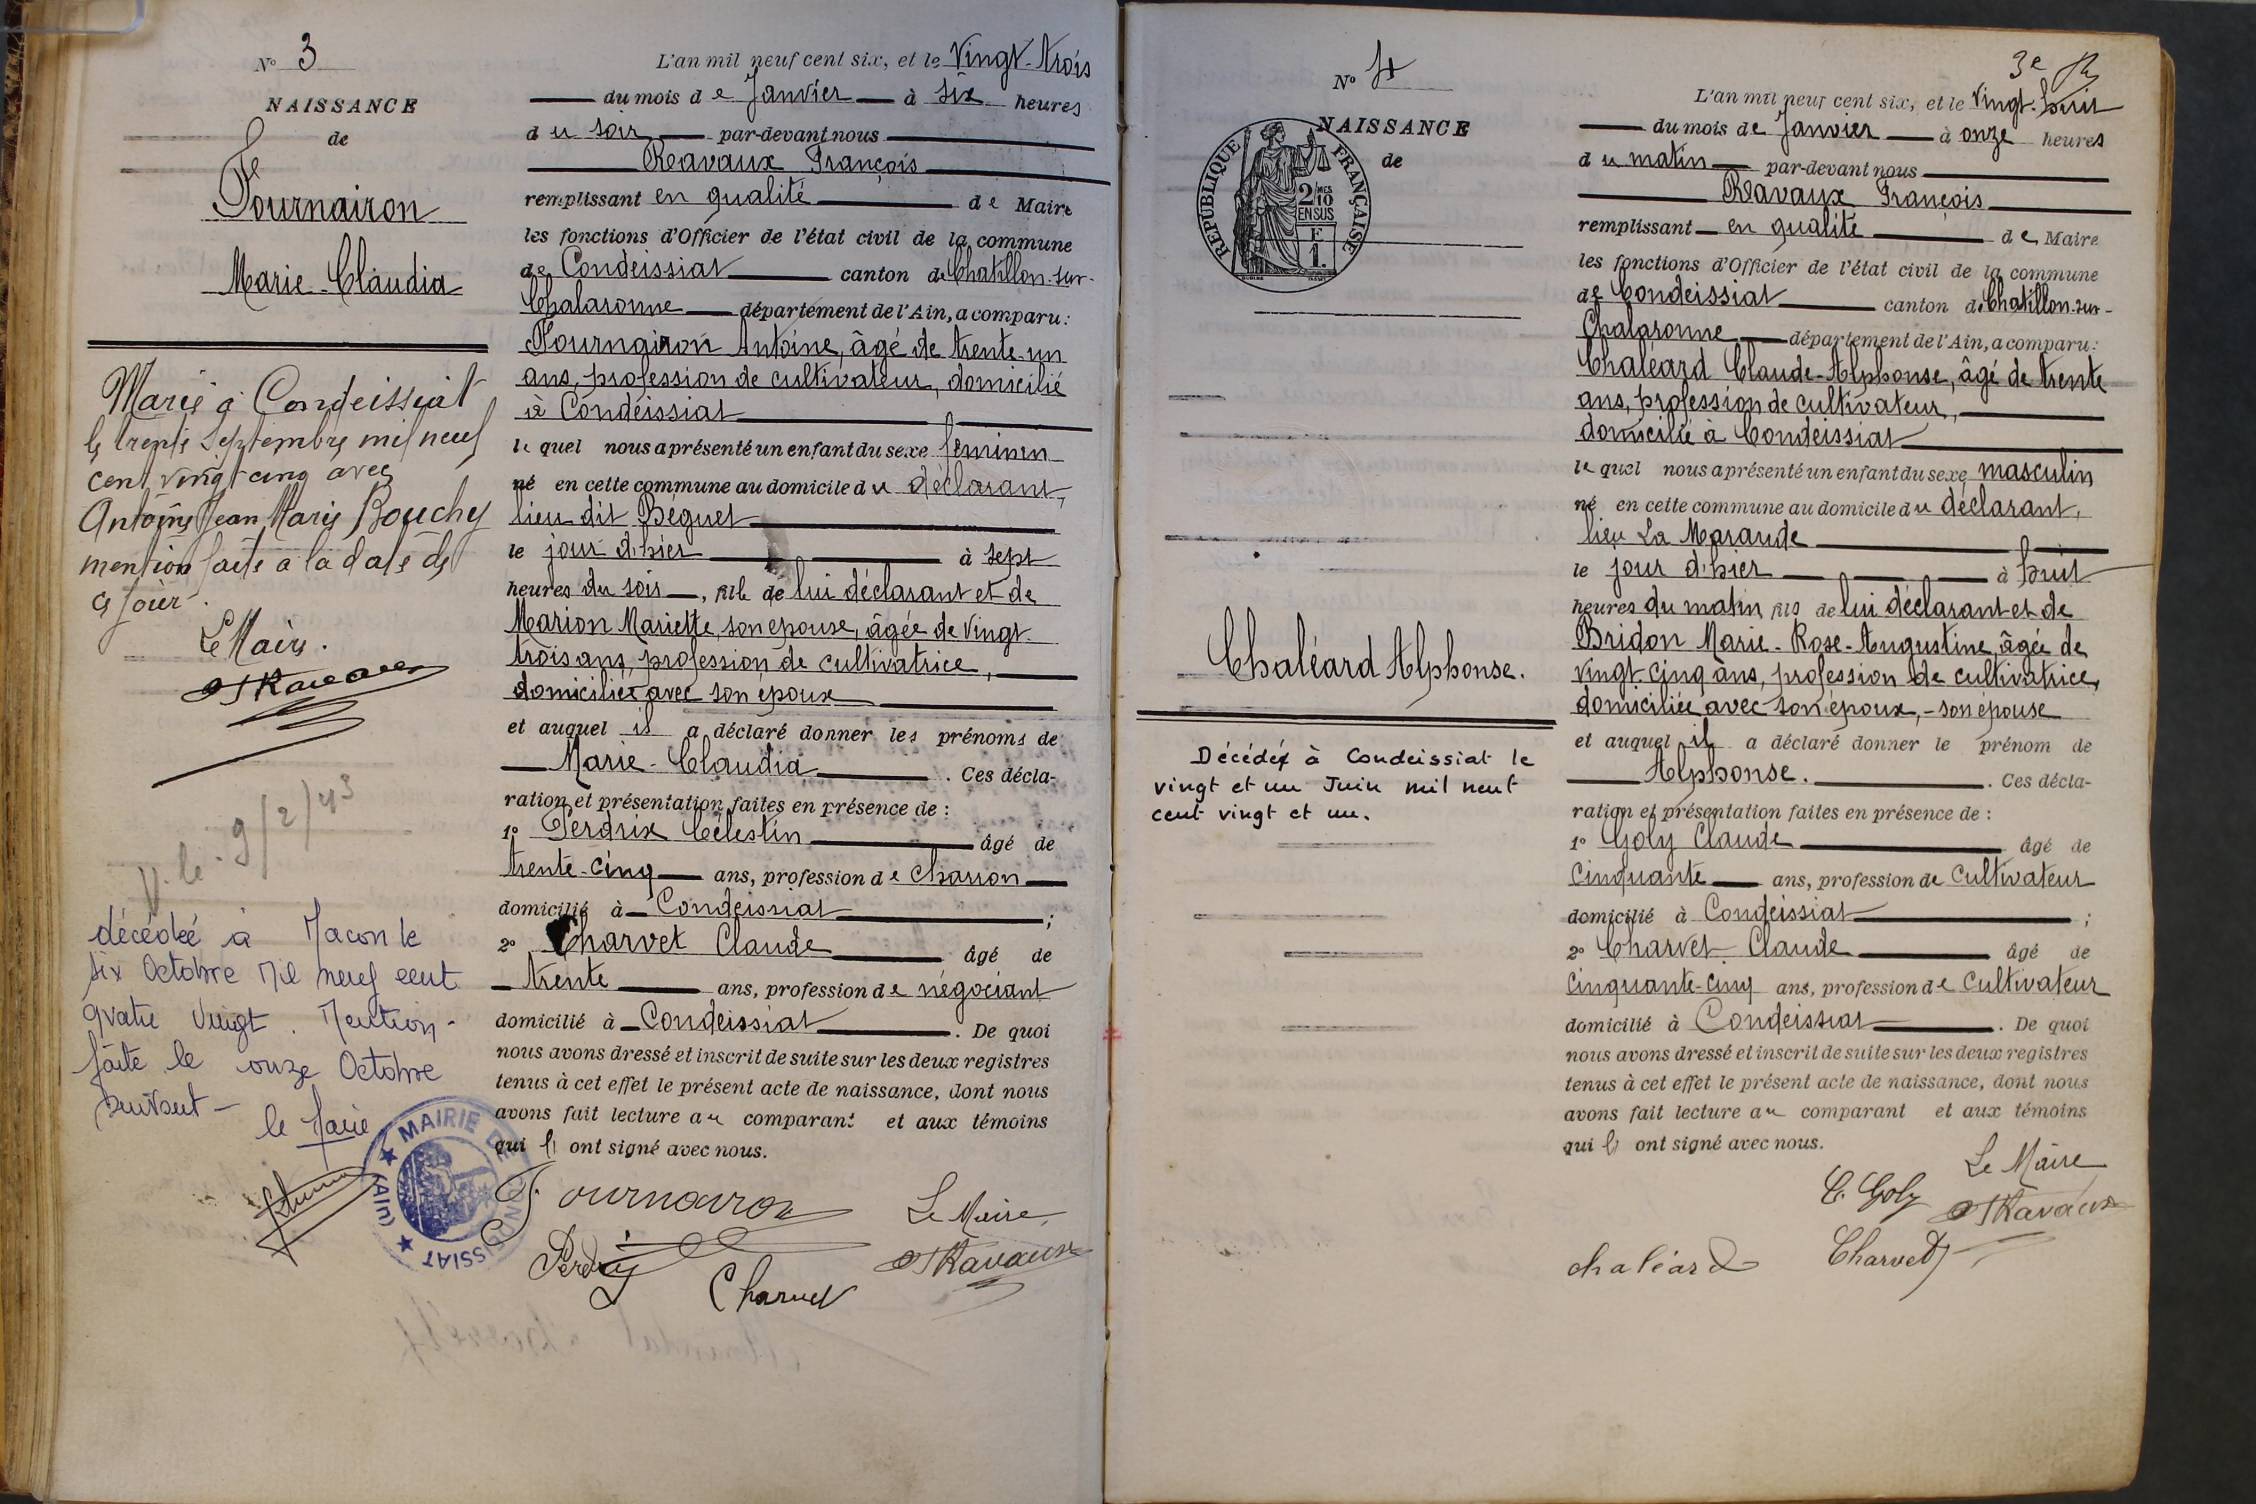 N° 3
NAISSANCE
de
Fournairon
Marie-Claudia
Marié à Condeissiat
le trente Septembre mil neuf
cent vingt cinq avec
Antoine Jean Marie Bouchy
mention faite à la date de
ce jour.
Le Maire.
Ravaux
V. le 9/2/43
décédée à Macon le
six Octobre Mil neuf cent
quatre vingt. Mention
faite le onze Octobre
suivant
le Maire
MAIRIE DE CONDEISSIAT
(AIN)
L'an mil neuf cent six, et le Vingt-trois
du mois de Janvier à six heures
du soir par-devant nous
Ravaux François
remplissant en qualité de Maire
les fonctions d'Officier de l'état civil de la commune
de Condeissiat canton de Chatillon-sur-
Chalaronne département de l'Ain, a comparu:
Fournairon Antoine, âgé de trente-un
ans, profession de cultivateur, domicilié
à Condeissiat
lequel nous a présenté un enfant du sexe féminin
né en cette commune au domicile du déclarant,
lieu dit Béguet
le jour d'hier à sept
heures du soir, fille de lui déclarant et de
Marion Mariette, son épouse, âgée de vingt-
trois ans, profession de cultivatrice,
domiciliée avec son époux
et auquel il a déclaré donner les prénoms de
Marie-Claudia. Ces décla-
ration et présentation faites en présence de :
1° Perdrix Célestin âgé de
trente-cinq ans, profession de charron
domicilié à Condeissiat ;
2° Charvet Claude âgé de
trente ans, profession de négociant
domicilié à Condeissiat. De quoi
nous avons dressé et inscrit de suite sur les deux registres
tenus à cet effet le présent acte de naissance, dont nous
avons fait lecture au comparant et aux témoins
qui ont signé avec nous.
Fournairon
Le Maire,
Perdrix
Charvet
Ravaux
3e
N° 4
NAISSANCE
de
RÉPUBLIQUE FRANÇAISE
2/MES
10
EN SUS
F
1.
Chaléard Alphonse.
Décédé à Condeissiat le
vingt et un Juin mil neuf
cent vingt et un.
L'an mil neuf cent six, et le vingt-huit
du mois de Janvier à onze heures
du matin par-devant nous
Ravaux François
remplissant en qualité de Maire
les fonctions d'Officier de l'état civil de la commune
de Condeissiat canton de Chatillon-sur-
Chalaronne département de l'Ain, a comparu:
Chaleard Claude-Alphonse, âgé de trente
ans, profession de cultivateur,
domicilié à Condeissiat
lequel nous a présenté un enfant du sexe masculin
né en cette commune au domicile du déclarant,
lieu La Maraude
le jour d'hier à huit
heures du matin, fils de lui déclarant et de
Bridon Marie-Rose-Augustine, âgée de
vingt-cinq ans, profession de cultivatrice,
domiciliée avec son époux, - son épouse
et auquel il a déclaré donner le prénom de
Alphonse. Ces décla-
ration et présentation faites en présence de :
1° Goly Claude âgé de
cinquante ans, profession de Cultivateur
domicilié à Condeissiat ;
2° Charvet Claude âgé de
cinquante-cinq ans, profession de Cultivateur
domicilié à Condeissiat. De quoi
nous avons dressé et inscrit de suite sur les deux registres
tenus à cet effet le présent acte de naissance, dont nous
avons fait lecture au comparant et aux témoins
qui ont signé avec nous.
Le Maire
C. Goly
Ravaux
chaléard
Charvet